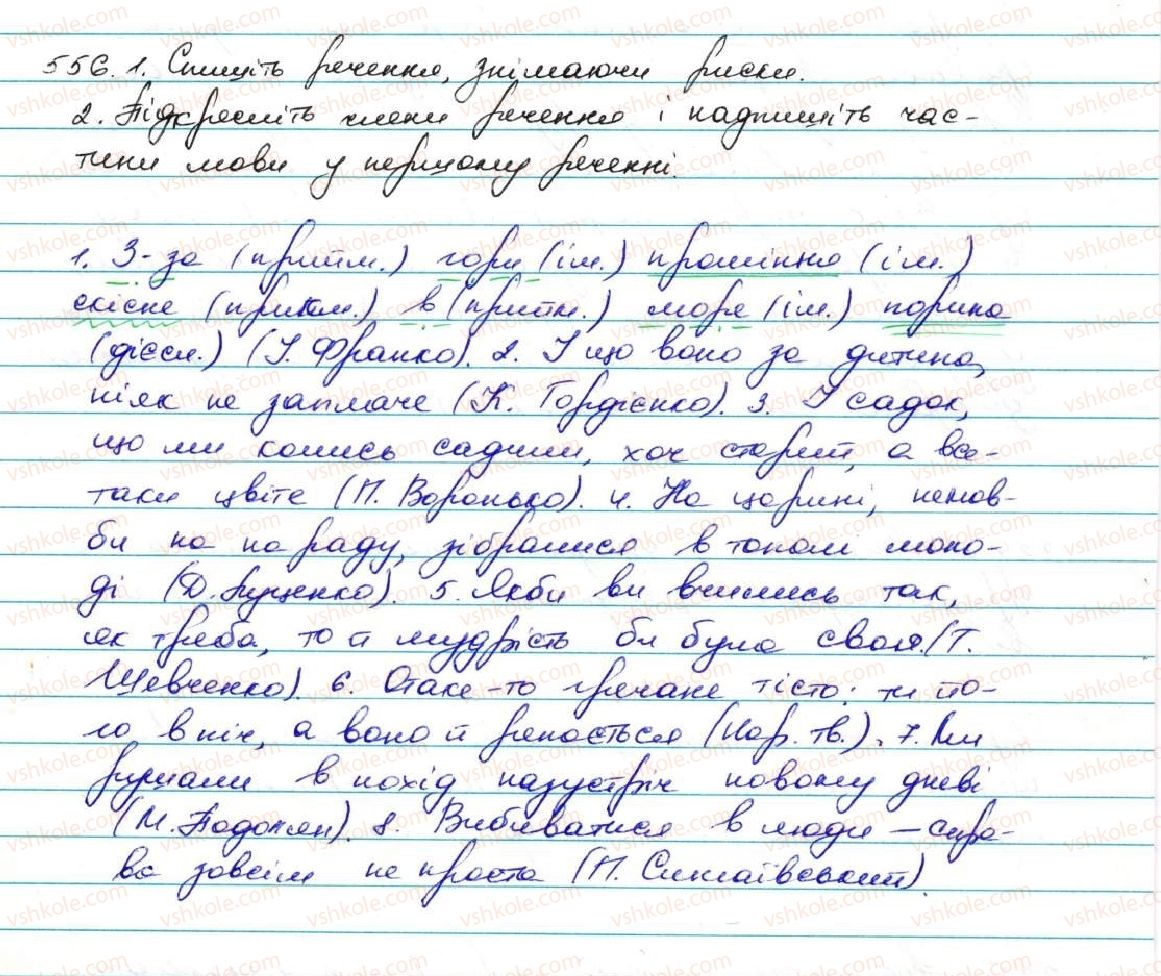 556. 1. Спишіть речення, знімаючи риски.
2. Підкресліть члени речення і надпишіть час-
тини мови у першому реченні.
1. З-за (прийм.) гори (ім.) проміння (ім.)
скісне (прикм.) в (прийм.) море (ім.) порина
(дієсл.) (І. Франко). 2. І що воно за дитина,
ніяк не заплаче (К. Гордієнко). 3. І садок,
що ми колись садили, хоч старий, а все-
таки цвіте (П. Воронько). 4. На царині, немов-
би на параду, зібралися в тополі моло-
ді (Д. Луценко). 5. Якби ви вчились так,
як треба, то й мудрість би була своя. (Т.
Шевченко). 6. Отаке-то гречане тісто: ти йо-
го в піч, а воно й репається (Нар. тв.). 7. Ми
рушали в похід назустріч новому дневі
(М. Подолян). 8. Вибиватися в люди – спра-
ва зовсім не проста (П. Сингаївський).